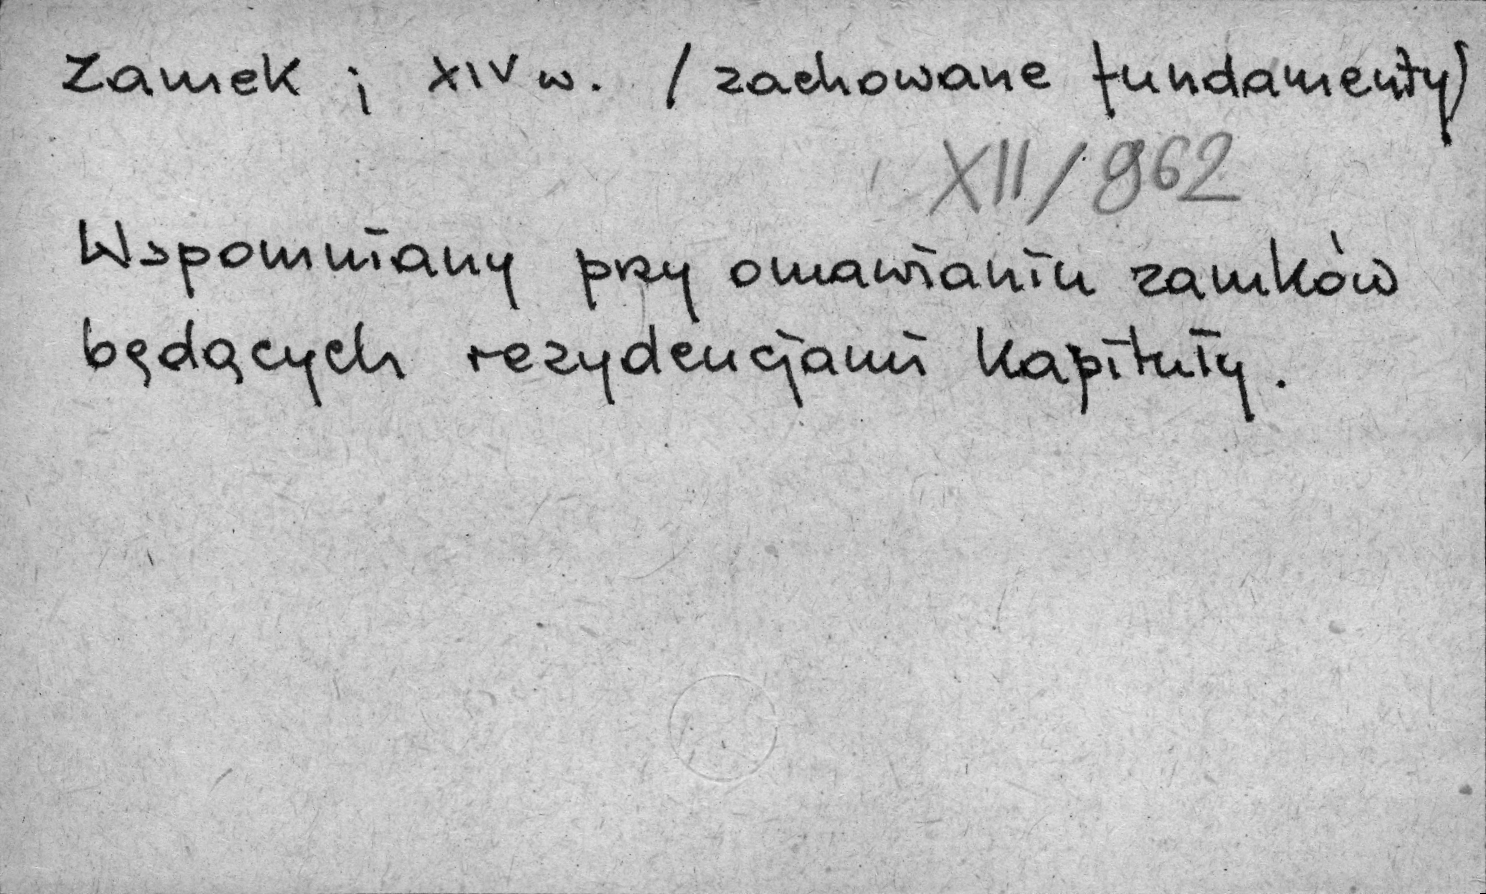 Zamek ; XIV w. /zachowane fundamenty/
XII/962
Wspomniany przy omawianiu zamków
będących rezydencjami Kapituły.